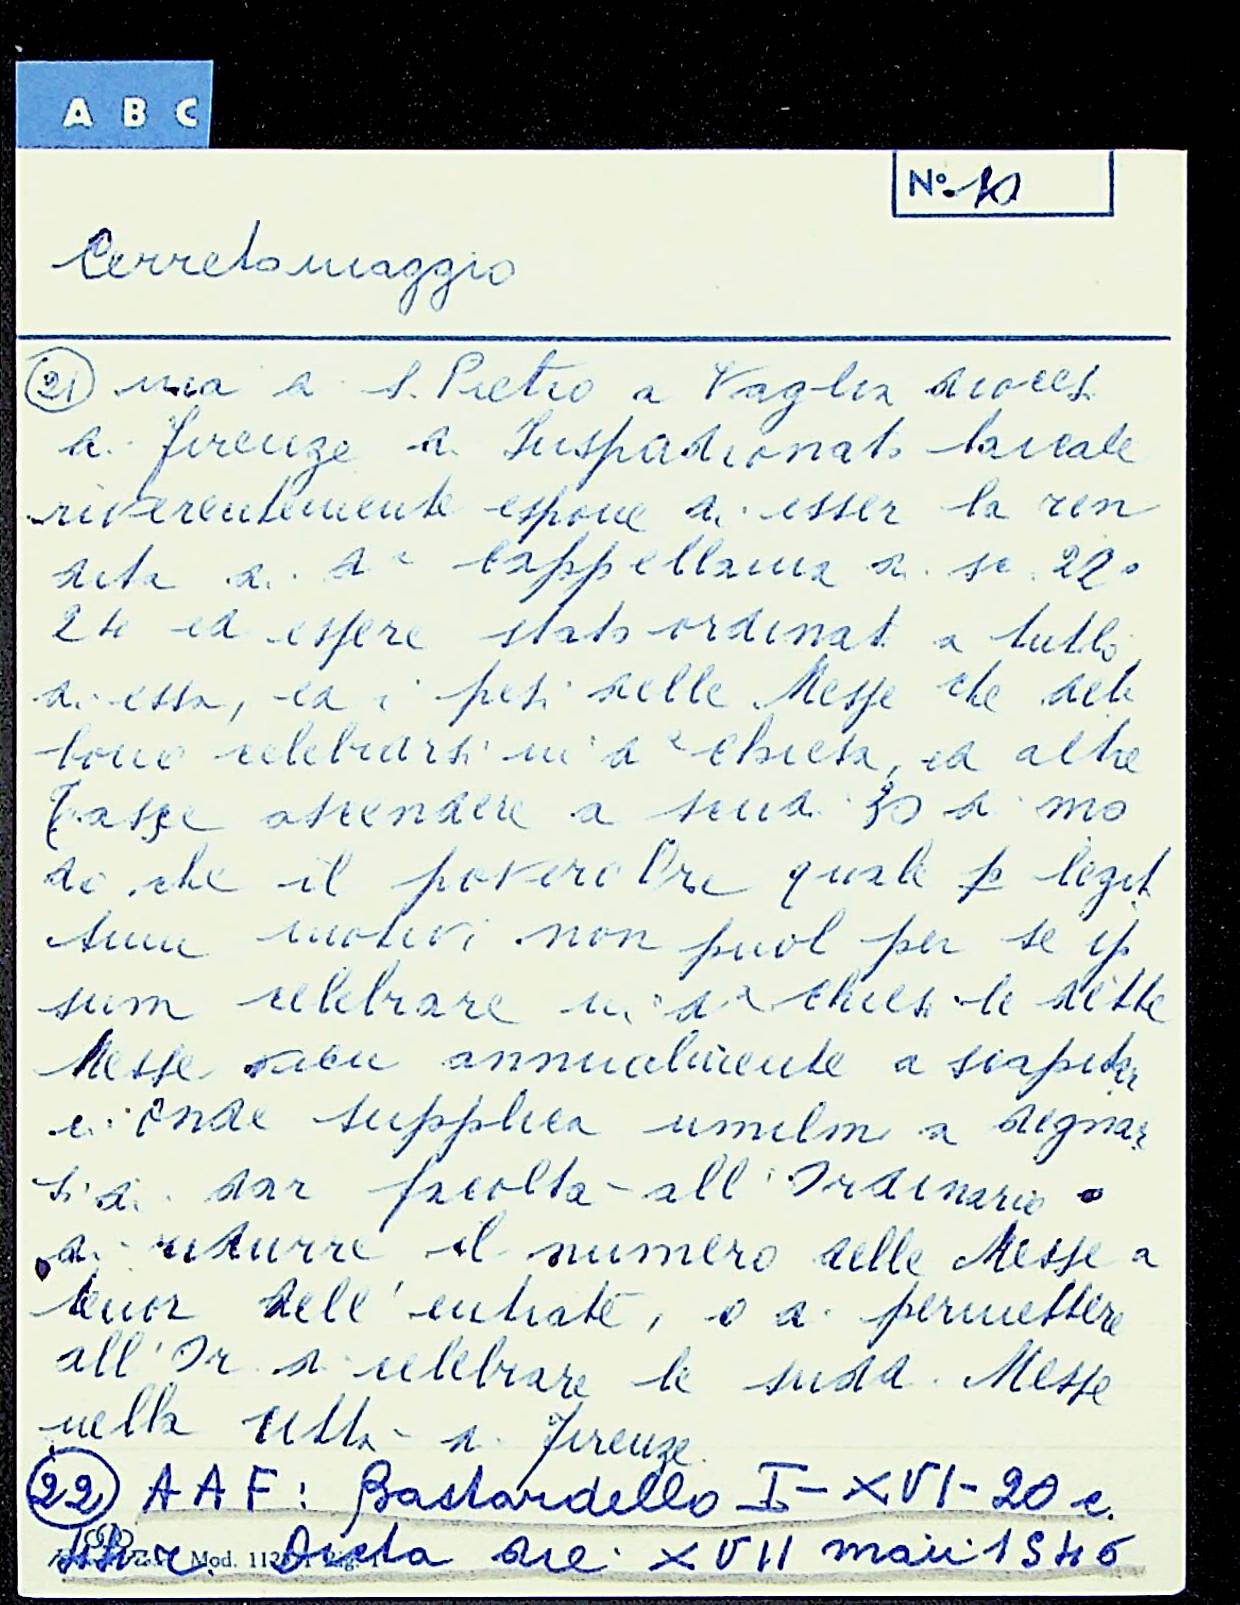 A B C
Nº 10
Cerretomaggio
(21) una a S. Pietro a Vaglia dioces.
di Firenze di Juspadronato laicale
riverentemente espone di esser la ren
dita di da Cappellania di sc. 22.
24 ed essere stato ordinat. a tutto
di essa, ed i pesi delle Messe che deb
bono celebrarsi in da chiesa, ed altre
Tasse ascendere a scudi 30 di mo
do che il povero Ore quale p legit
timi motivi non puol per se ip
sum celebrare in da chies. le dette
Messe annualmente a scapitar
ci onde supplica umilm. a degnar
si di dar facolta all'Ordinario
di ridurre il numero delle Messe a
tenor dell'entrate, o di permettere
all'Or. di celebrare le sudd. Messe
nella Citta di Firenze.
(22) AAF: Bastardello I-XVI-20 c.
Dicta die XVII maii 1546
Mod. 112